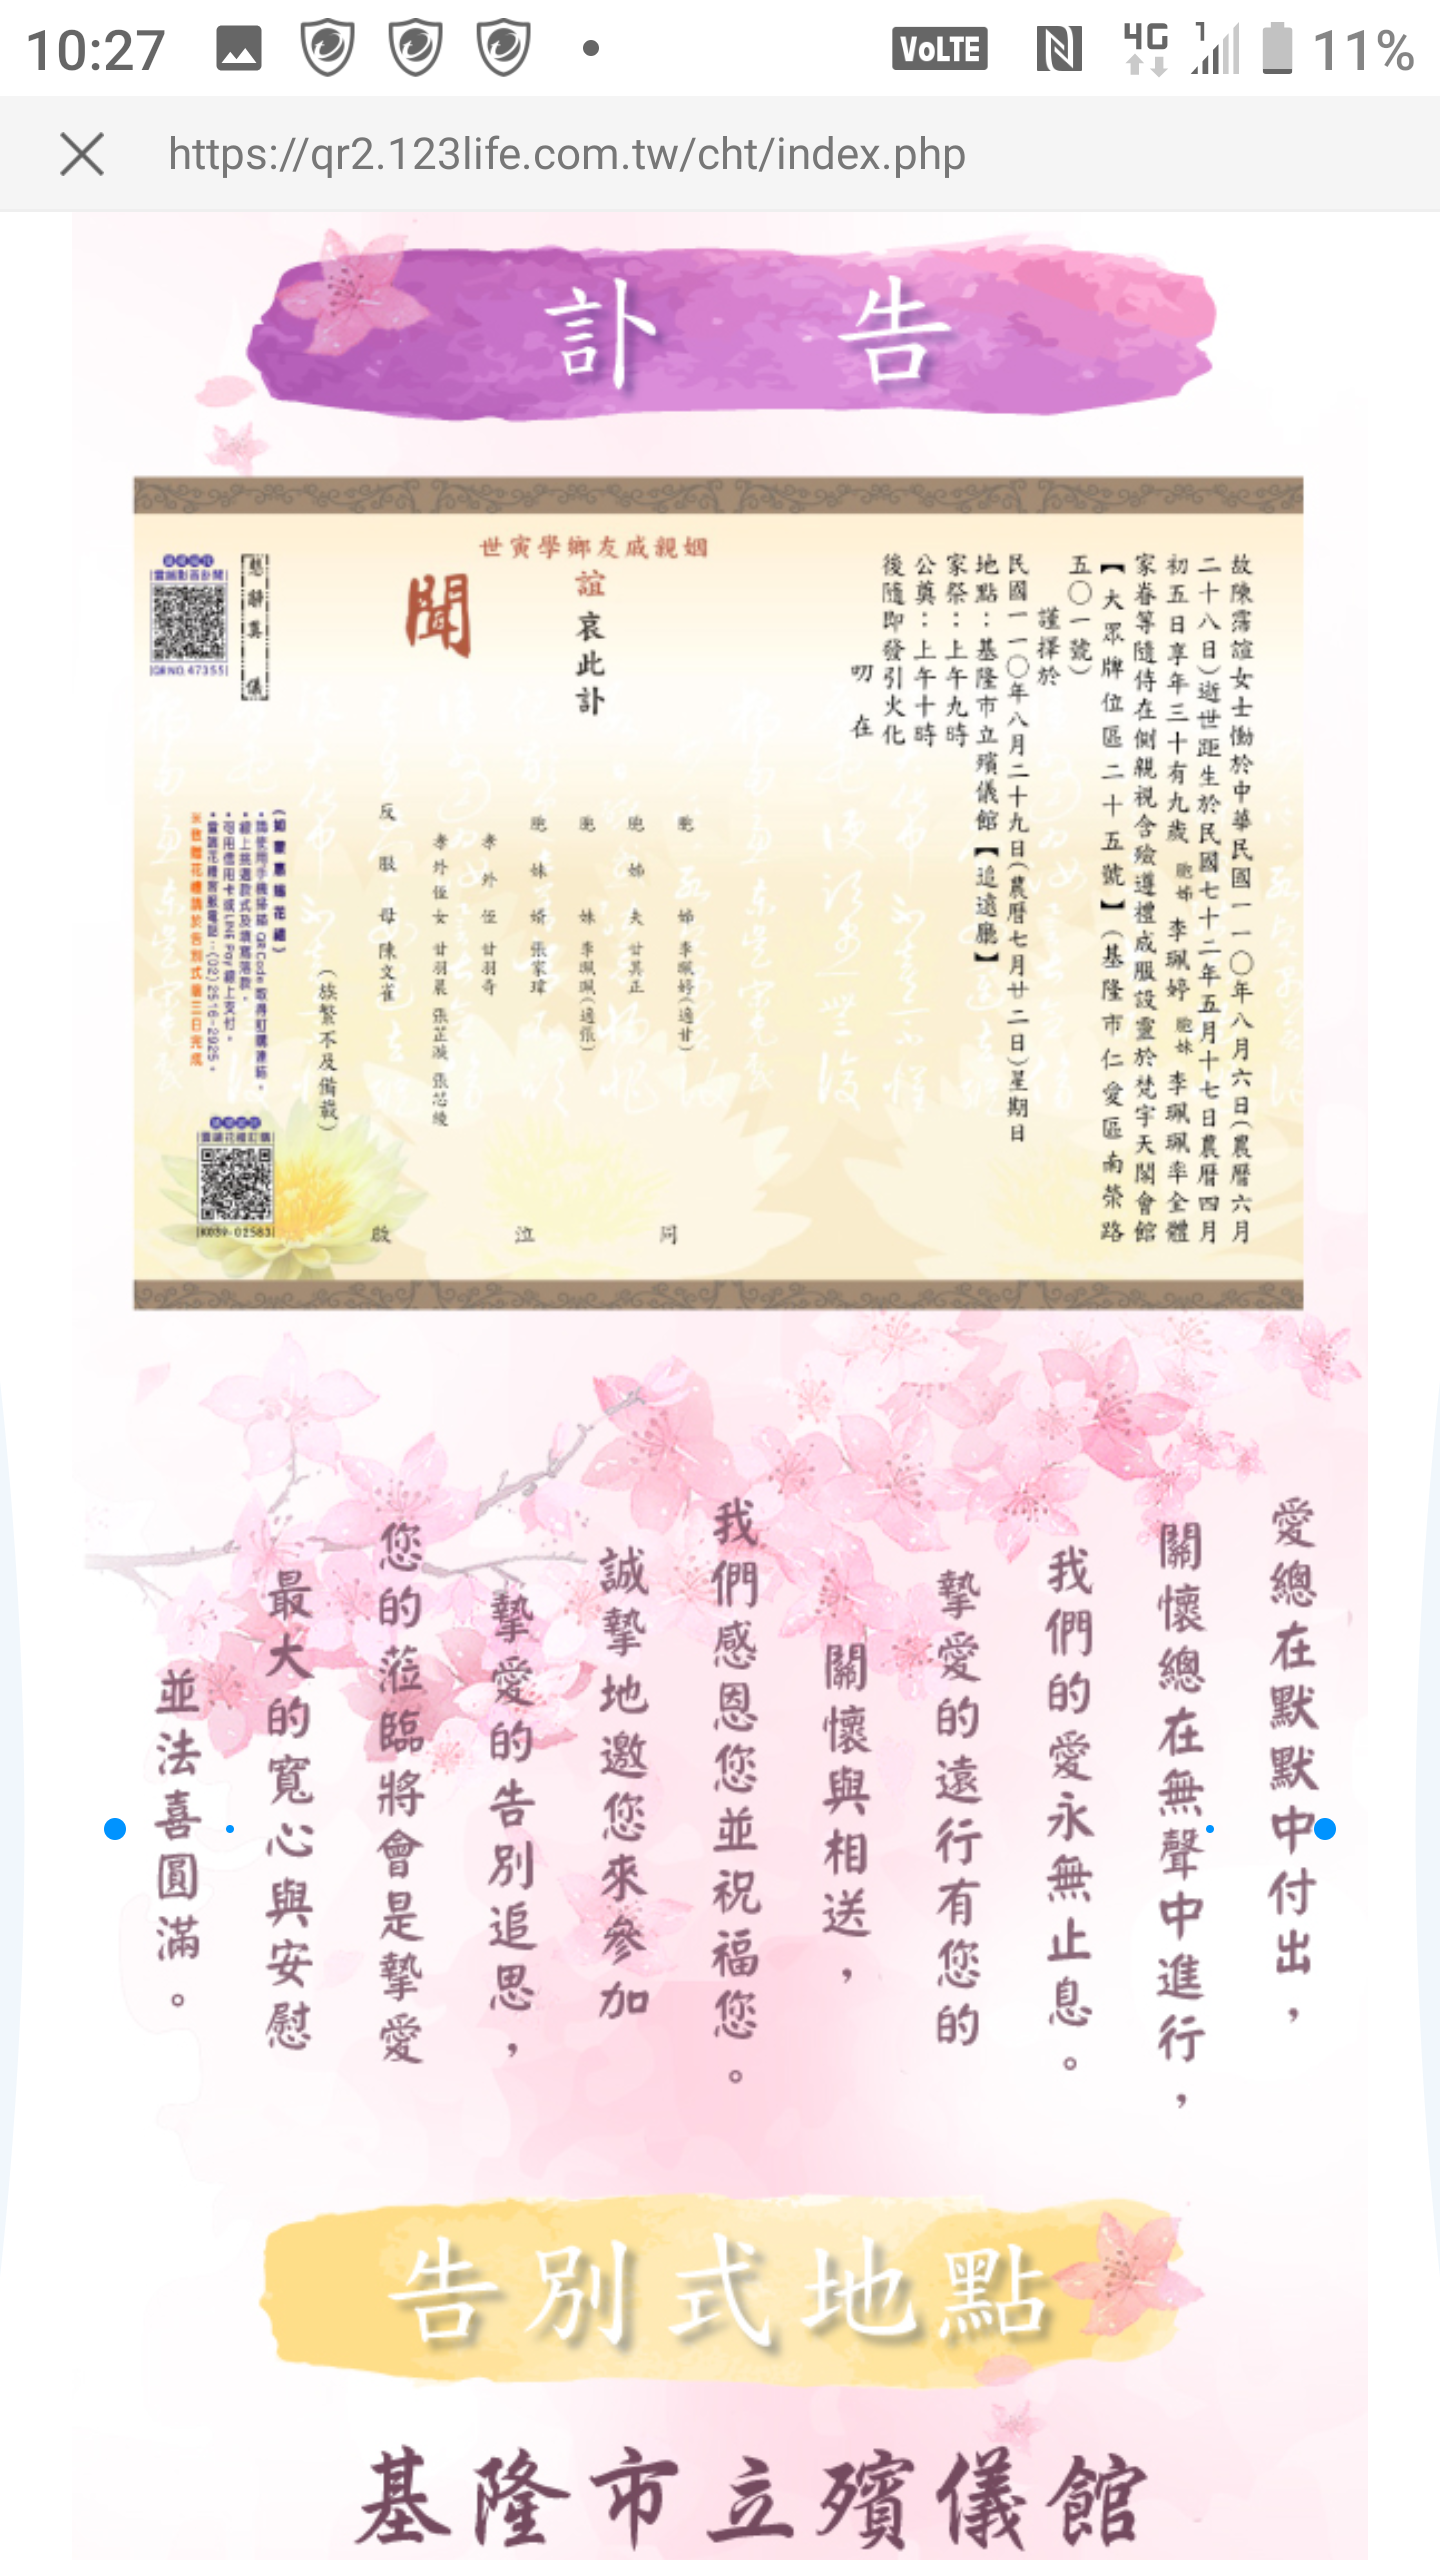 10:27
VoLTE
4G
1
11%
https://qr2.123life.com.tw/cht/index.php
訃告
故陳霈誼女士慟於中華民國一一〇年八月六日(農曆六月
二十八日)逝世距生於民國七十二年五月十七日農曆四月
初五日享年三十有九歲 胞姊 李珮婷 胞妹 李珮珮率全體
家眷等隨侍在側親視含殮遵禮成服設靈於梵宇天閣會館
【大眾牌位區二十五號】(基隆市仁愛區南榮路
五〇一號)
謹擇於
民國一一〇年八月二十九日(農曆七月廿二日)星期日
地點：基隆市立殯儀館【追遠廳】
家祭：上午九時
公奠：上午十時
後隨即發引火化
叨在
姻親戚友鄉學寅世
誼哀此訃
聞
胞姊 李珮婷(適甘)
胞姊夫 甘其正
胞妹 李珮珮(適張)
胞妹婿 張家瑋
孝外侄 甘羽奇
孝外侄女 甘羽晨 張芷 張芯綾
反服母 陳文雀
(族繁不及備載)
同泣啟
懇辭奠儀
雲端影音訃聞
QR NO. 47355
(如蒙惠賜花籃)
•請使用手機掃描QR Code取得訂購連結。
•線上挑選款式及填寫落款。
•可用信用卡或LINE Pay線上支付。
•雲端花禮客服電話：(02)2516-2925。
雲端花禮訂購
K039-02583
愛總在默默中付出，
關懷總在無聲中進行，
我們的愛永無止息。
摯愛的遠行有您的
關懷與相送，
我們感恩您並祝福您。
誠摯地邀您來參加
摯愛的告別追思，
您的蒞臨將會是摯愛
最大的寬心與安慰
並法喜圓滿。
告別式地點
基隆市立殯儀館